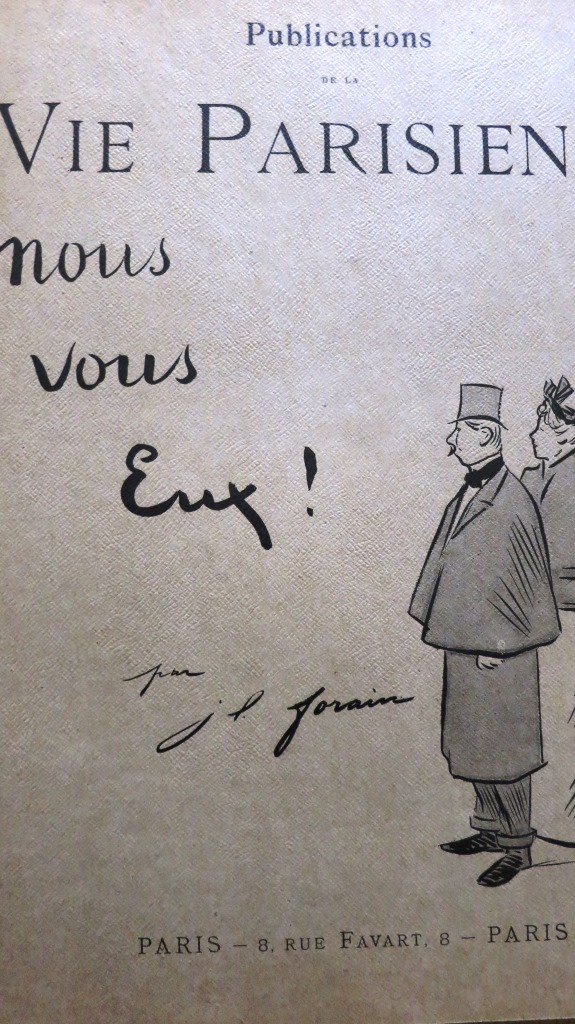 Publications
DE LA
VIE PARISIEN
nous
vous
Eux !
par
j l. forain
PARIS – 8, RUE FAVART, 8 – PARIS